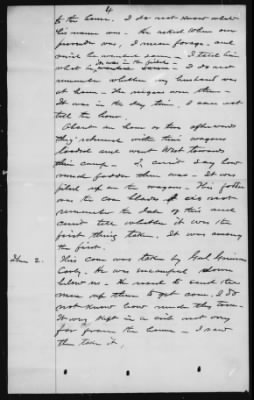 4
to the house. I do not know what
his name was. He asked where our
provender was, I mean forage, and
said he wanted some — I told him
what
it was in the fields
I do not
remember whether my husband was
at home — The negroes were there —
It was in the day time, I can not
tell the hour.
About an hour or two afterwards
they returned with their wagons
loaded and went West towards
their camp — I can't say how
much fodder there was — It was
piled up on the wagons — This fodder
was the corn blades I do not
remember the date of this and
can't tell whether it was the
first thing taken. It was among
the first.
Item 2.
This corn was taken by Genl
Corly. He was encamped down
below us — He used to send the
men up there to get corn. I do
not know how much they took —
It was kept in a crib not very
far from the house — I saw
them take it.